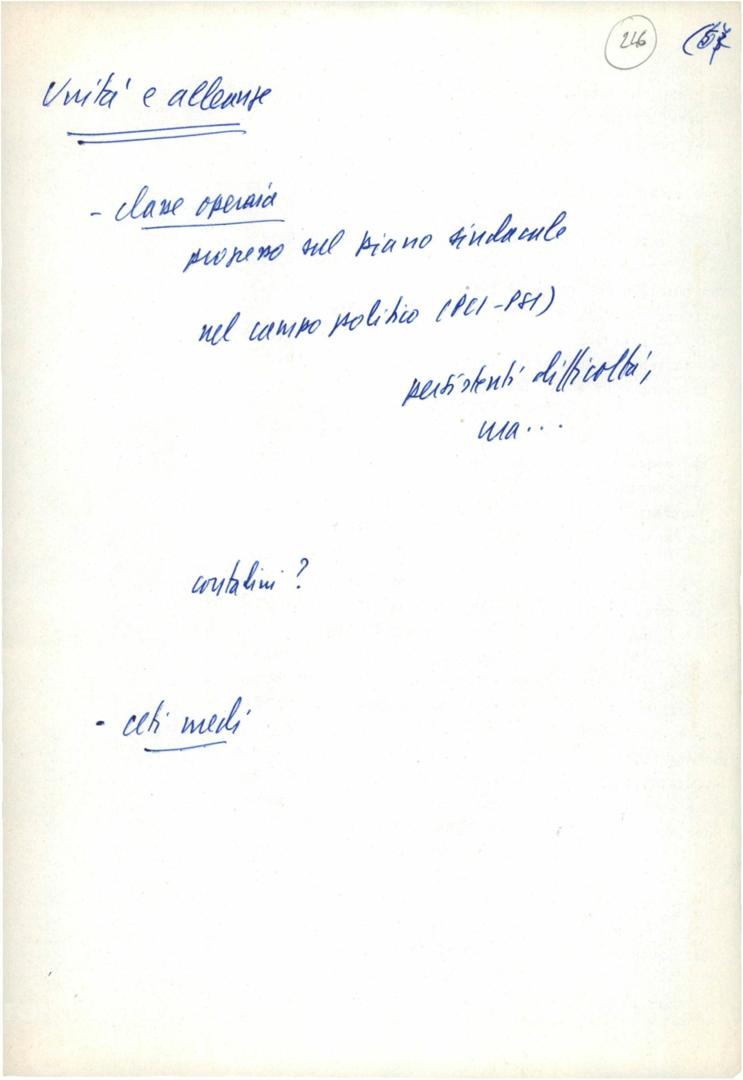 216
Unità e alleanze
- classe operaia
progresso sul piano sindacale
nel campo politico (PCI-PSI)
persistenti difficoltà,
ma...
contadini?
- ceti medi